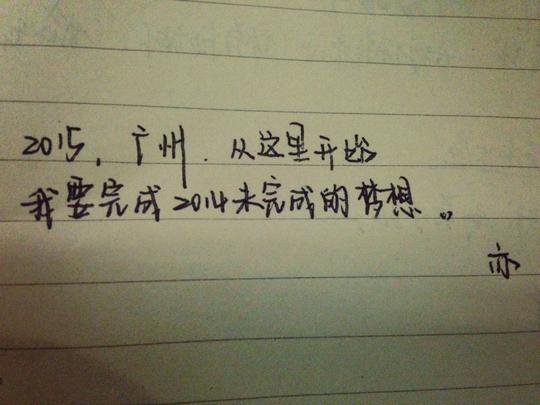 2015，广州．从这里开始
我要完成2014未完成的梦想。
亦